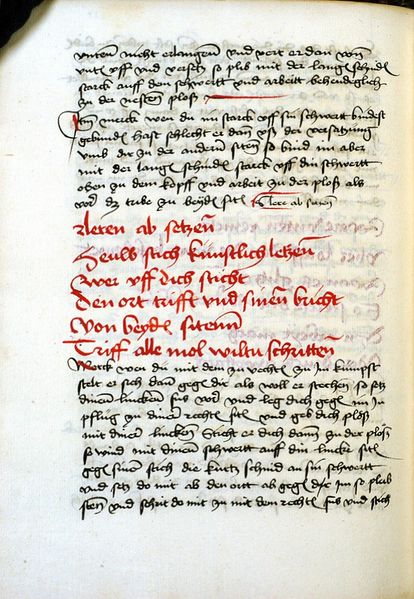 vnten nicht erlangenn vnd vert er dan vonn
vntn vff vnd versetz so plib mit der langn schnidn
starck auff dem schwertt vnd arbeitt behendeglich
zu der nesten ploß
Item merck wen du im starck vff sin schwert bindest
gebunden hast schlecht er dann vß der versatzung
vmb dir zu der andern sitenn so bind im aber
mit der langn schnidn starck vff din schwertt
oben zu dem kopff vnd arbeit zu der ploß als
vor zu beydn sitn lere ab setzen
Leren ab setzenn
Heuw stich kunstlich letzenn
Wer vff dich sticht
Den ort trifft vnd sinenn bricht
Von beydn sitenn
Triff alle mol wiltu schrittenn
Merck wen du mit dem zu vechtn zu im kumpst
stelt er sich dann gegn dir als woll er stechen so setz
dinen lincken fus vor vnd leg dich gegn im in
pflug zu diner rechtn sitn vnd geb dich ploß
mit diner lincken Sticht er dich dann zu der ploß
so wind mit dinem schwertt auff din lincke sitn
gegn sinem stich die kurtz schnid an sin schwertt
vnd setz do mit ab den ortt ab gegn dir im so plib
sten vnd schrit do mit zu mit dem rechtn fus vnd stich